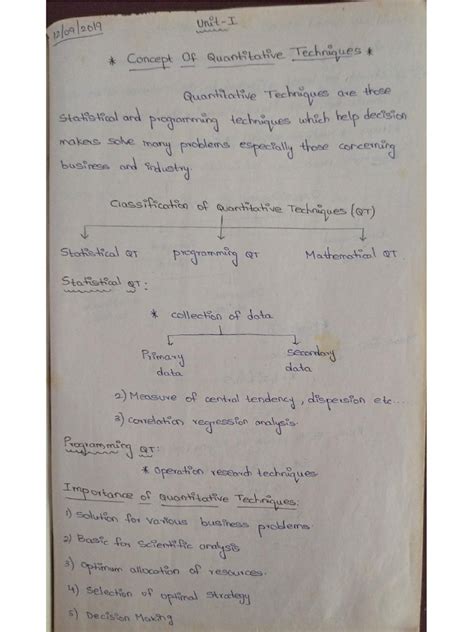 12/09/2019
Unit-I
* Concept Of Quantitative Techniques *
Quantitative Techniques are those
Statistical and programming techniques which help decision
makers solve many problems especially those concerning
business and industry.
Classification of Quantitative Techniques (QT)
Statistical QT programming QT Mathematical QT.
Statistical QT:
* collection of data
Primary data secondary data
2) Measure of central tendency, dispersion etc....
3) correlation regression analysis.
Programming QT:
* Operation research techniques
Importance of Quantitative Techniques:
1) Solution for various business problems.
2) Basic for Scientific analysis
3) Optimum allocation of resources.
4) Selection of optimal strategy
5) Decision Making